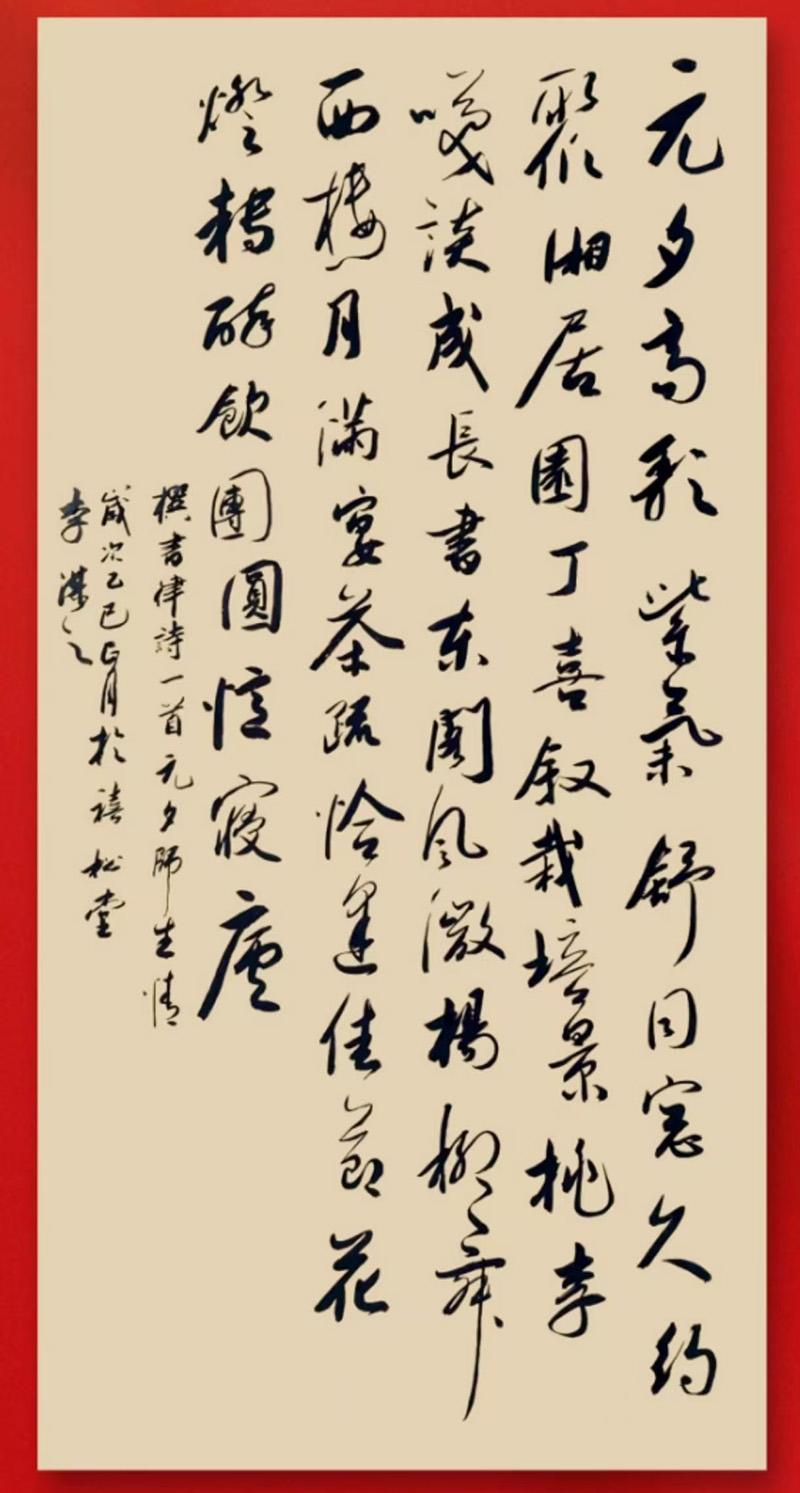 元夕高紫氣舒同窓久約
聚湘居園丁喜叙栽培景桃李
談成長書東閣風微楊柳舞
西樓月滿宴茶疏恰逢佳節花
燈醉飲團圓憶寢廬
撰書律詩一首元夕師生情
歲次乙巳正月於禧松堂
李之